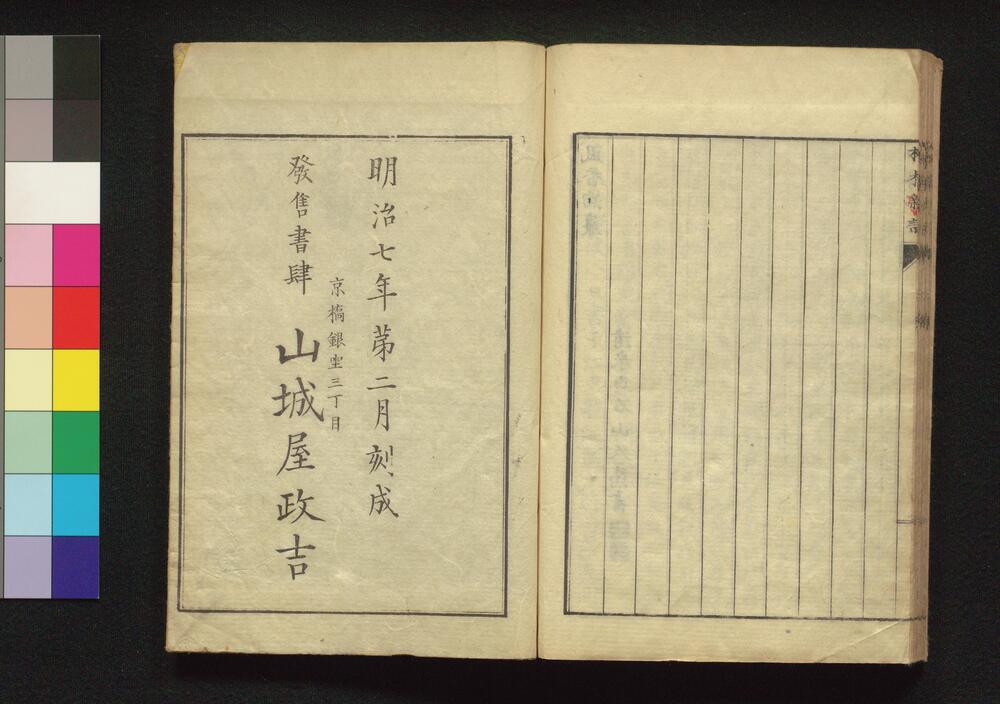 明治七年第二月刻成
京橋銀坐三丁目
發售書肆　山城屋政吉